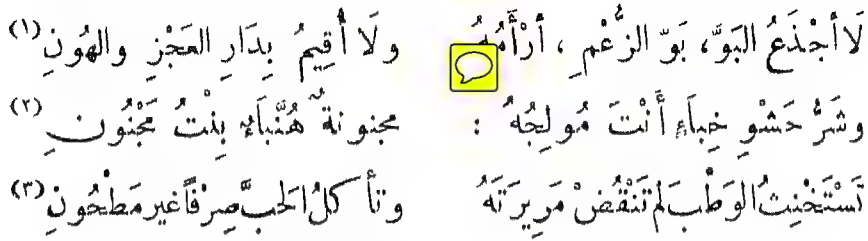 لَا أَجْذَعُ البَوَّ، بَوّ الزُّعْمِ، أَرْأَمُهُ ولَا أُقِيمُ بِدَارِ العَجْزِ والهُونِ (١)
وشَرُّ حَشْوِ خِبَاءٍ أَنْتَ مُولِجُهُ : مجنونةٌ هُنَّبَاءٌ بِنْتُ مَجْنُونِ (٢)
تَسْتَخْنِثُ الوَطْبَ لم تَنْقُضْ مَرِيرَتَهُ وتأكلُ الحَبَّ صِرْفًا غير مَطْحُونِ (٣)